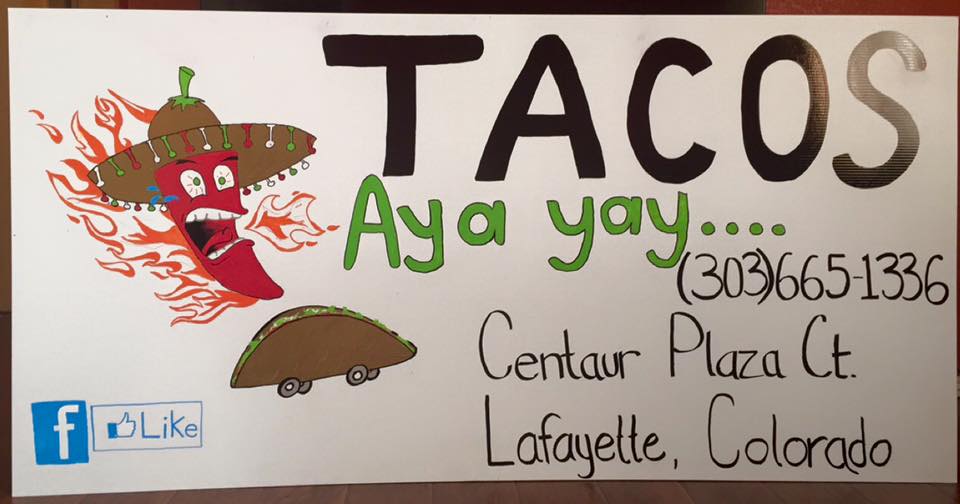 TACOS
Aya yay....
(303)665-1336
Centaur Plaza Ct.
Lafayette, Colorado
f Like